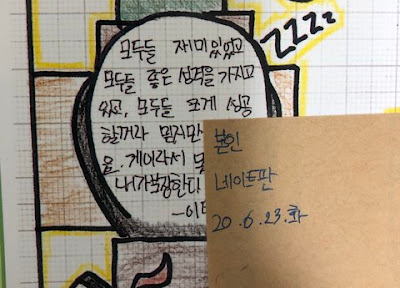 ZZZZ
모두들 재미있었고
모두들 좋은 성격을 가지고
있고, 모두들 크게 성공
할꺼라 믿지만
을.게이라서 못
내가보장한다
-이
본인
네이트판
20.6.23.화